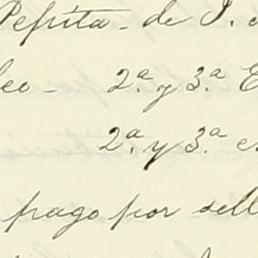 Pepita - de P.
leo - 2.ª y 3.ª E
2.ª y 3.ª e
pago por sell